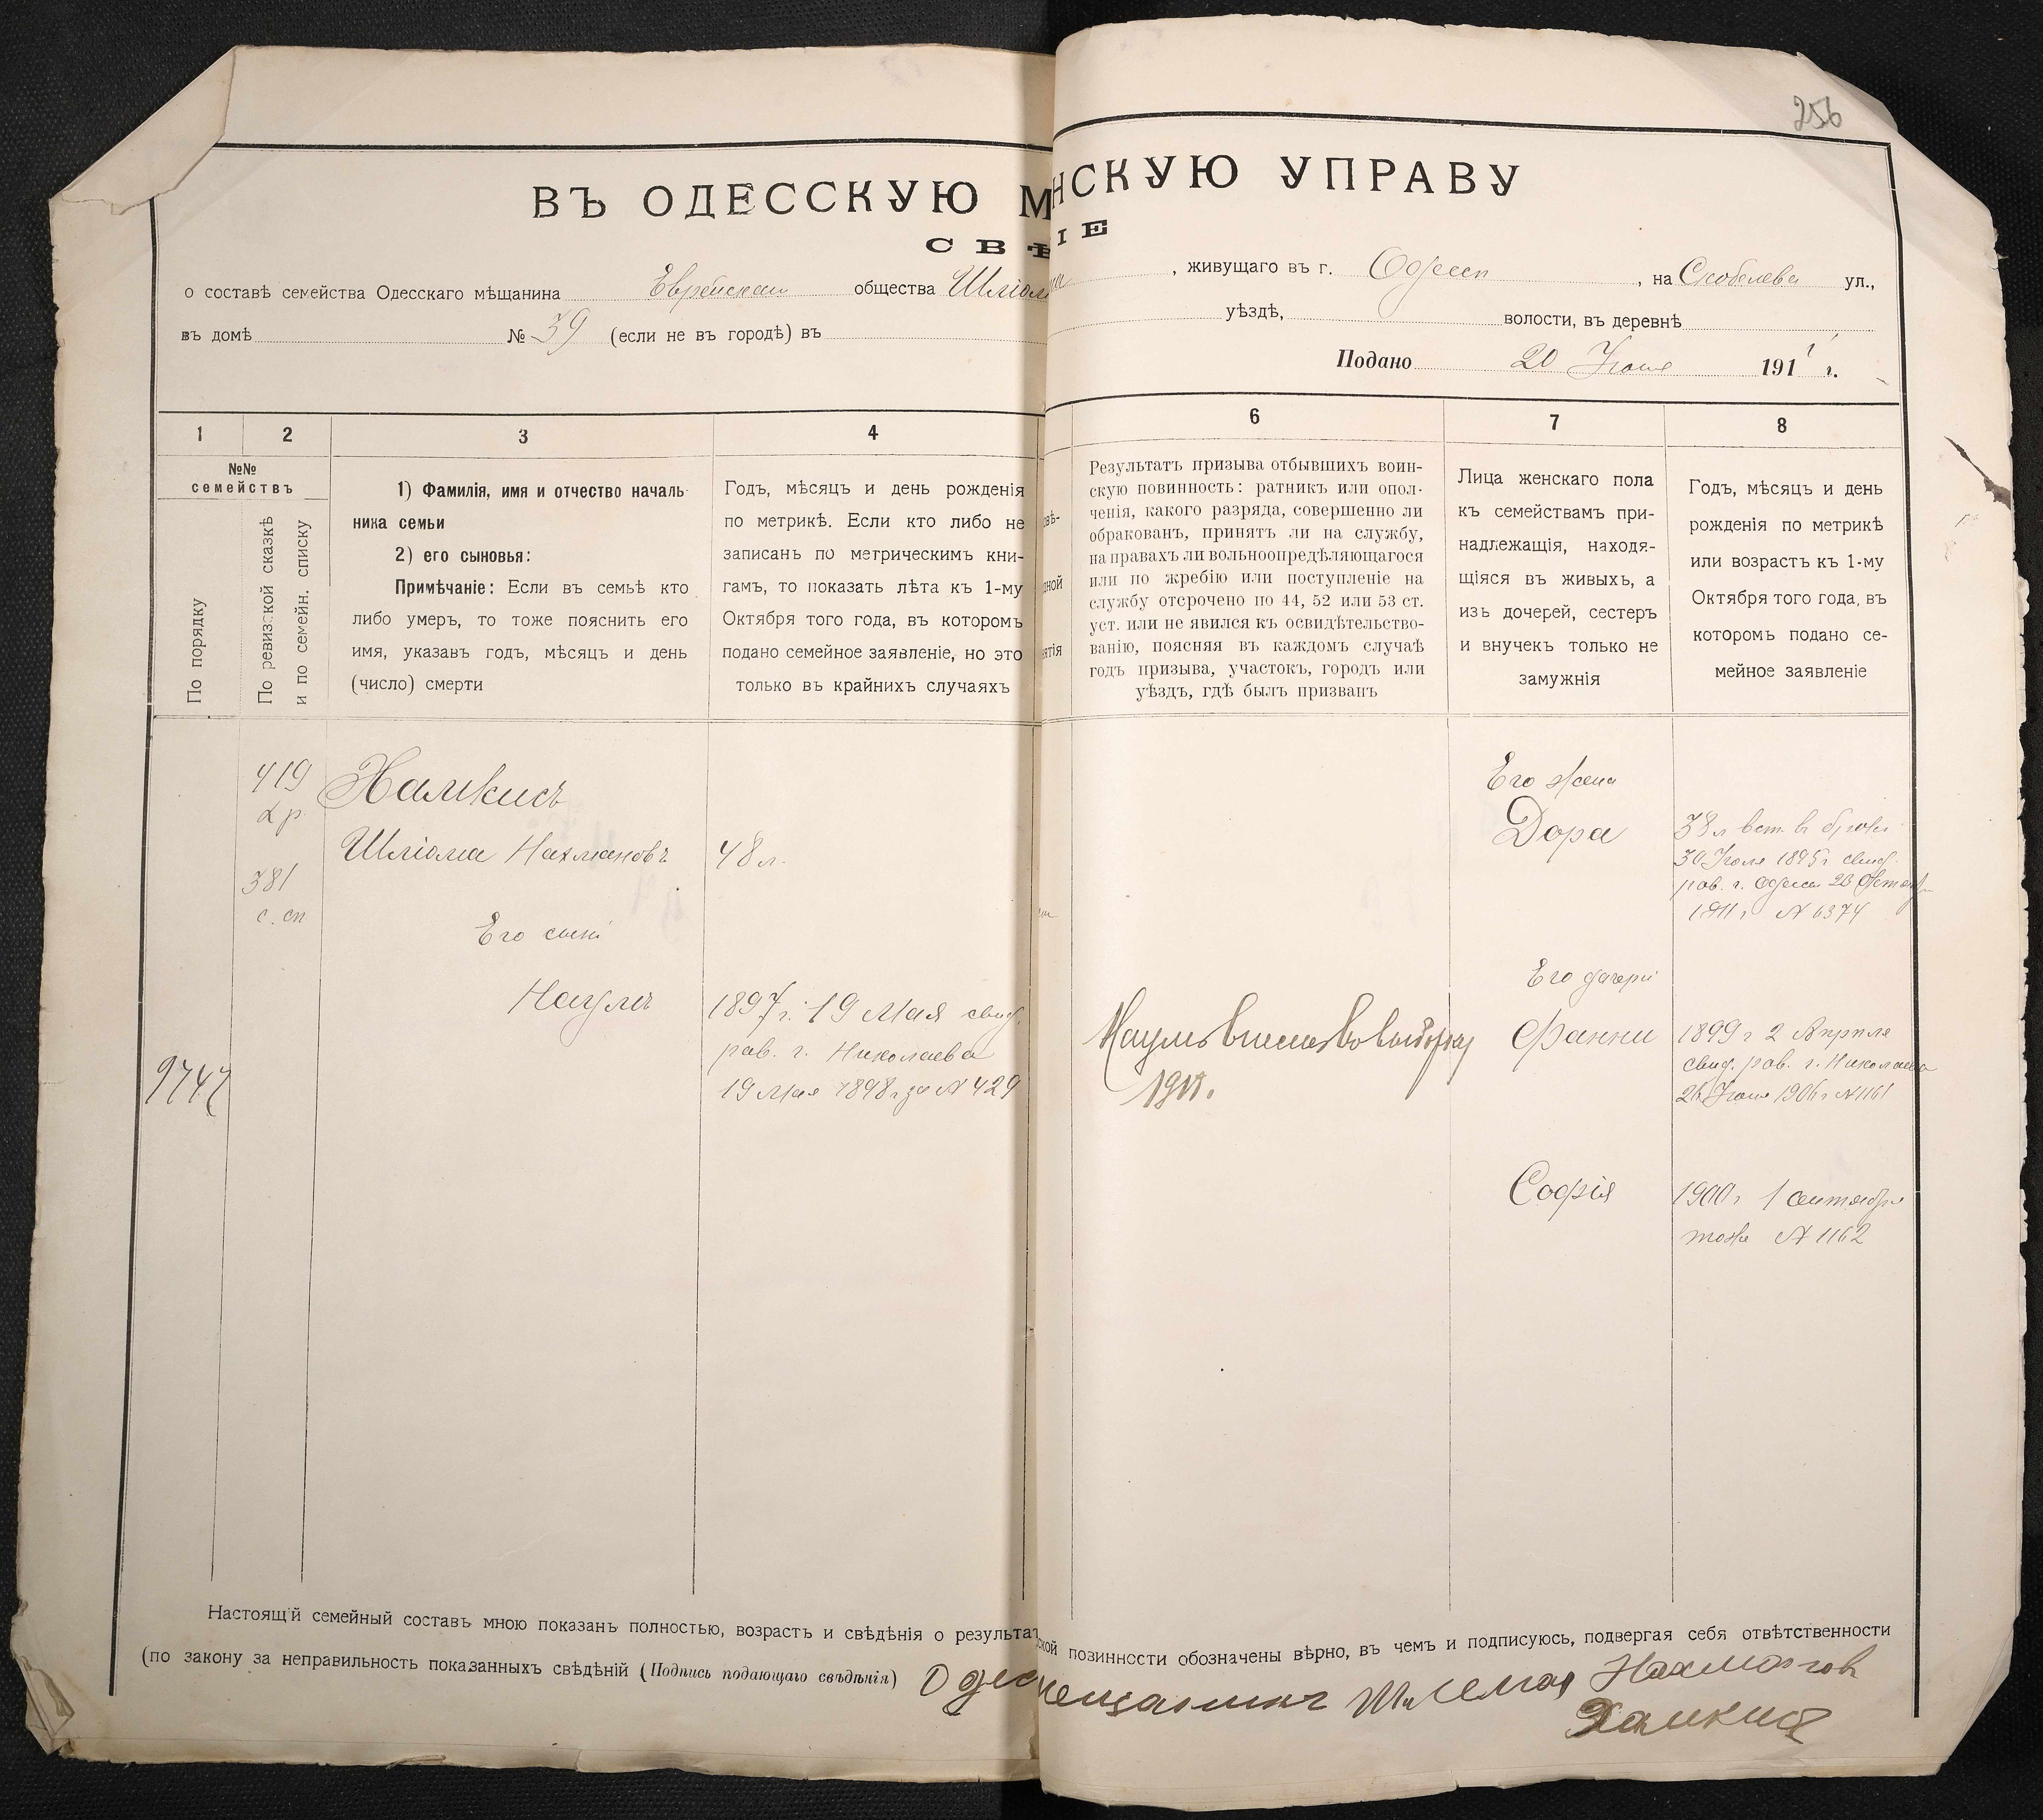 256
ВЪ ОДЕССКУЮ М НСКУЮ УПРАВУ
СВѢ ІЕ
о составѣ семейства Одесскаго мѣщанина Еврейскаго общества Шліом , живущаго въ г. Одессѣ , на Скобелева ул.,
въ домѣ № 39 (если не въ городѣ) въ уѣздѣ, волости, въ деревнѣ
Подано 20 Іюня 1911 г.
1 2 3 4 6 7 8
№№
семействъ
По порядку
По ревизской сказкѣ
и по семейн. списку
1) Фамилія, имя и отчество началь-
ника семьи
2) его сыновья:
Примѣчаніе: Если въ семьѣ кто
либо умеръ, то тоже пояснить его
имя, указавъ годъ, мѣсяцъ и день
(число) смерти
Годъ, мѣсяцъ и день рожденія
по метрикѣ. Если кто либо не
записанъ по метрическимъ кни-
гамъ, то показать лѣта къ 1-му
Октября того года, въ которомъ
подано семейное заявленіе, но это
только въ крайнихъ случаяхъ
Результатъ призыва отбывшихъ воин-
скую повинность: ратникъ или опол-
ченія, какого разряда, совершенно ли
обракованъ, принятъ ли на службу,
на правахъ ли вольноопредѣляющагося
или по жребію или поступленіе на
службу отсрочено по 44, 52 или 53 ст.
уст. или не явился къ освидѣтельство-
ванію, поясняя въ каждомъ случаѣ
годъ призыва, участокъ, городъ или
уѣздъ, гдѣ былъ призванъ
Лица женскаго пола
къ семействамъ при-
надлежащія, находя-
щіяся въ живыхъ, а
изъ дочерей, сестеръ
и внучекъ только не
замужнія
Годъ, мѣсяцъ и день
рожденія по метрикѣ
или возрастъ къ 1-му
Октября того года, въ
которомъ подано се-
мейное заявленіе
419
др
381
с. сп
9747
Хамкисъ
Шліома Нахмановъ 48 л.
Его сыні
Наумъ
1897 г. 19 Мая свид.
рав. г. Николаева
19 Мая 1898 г за № 429
Наумъ внесенъ во
191
Его жена
Дора
38 л вст. въ бракъ
30 Іюля 1895 г свид.
рав. г. Одессы 26
1911 г № 6374
Его дочери
Фанни
1899 г 2 Апрѣля
свид. рав. г. Николаева
26 Іюня 1906 г № 1161
Софія
1900 г 1 Сентября
тоже № 1162
Настоящій семейный составъ мною показанъ полностью, возрастъ и свѣдѣнія о результат ской повинности обозначены вѣрно, въ чемъ и подписуюсь, подвергая себя отвѣтственности
(по закону за неправильность показанныхъ свѣдѣній (Подпись подающаго свѣдѣнія) Одес мещанинъ Шлёма Нахманов
Хамкис